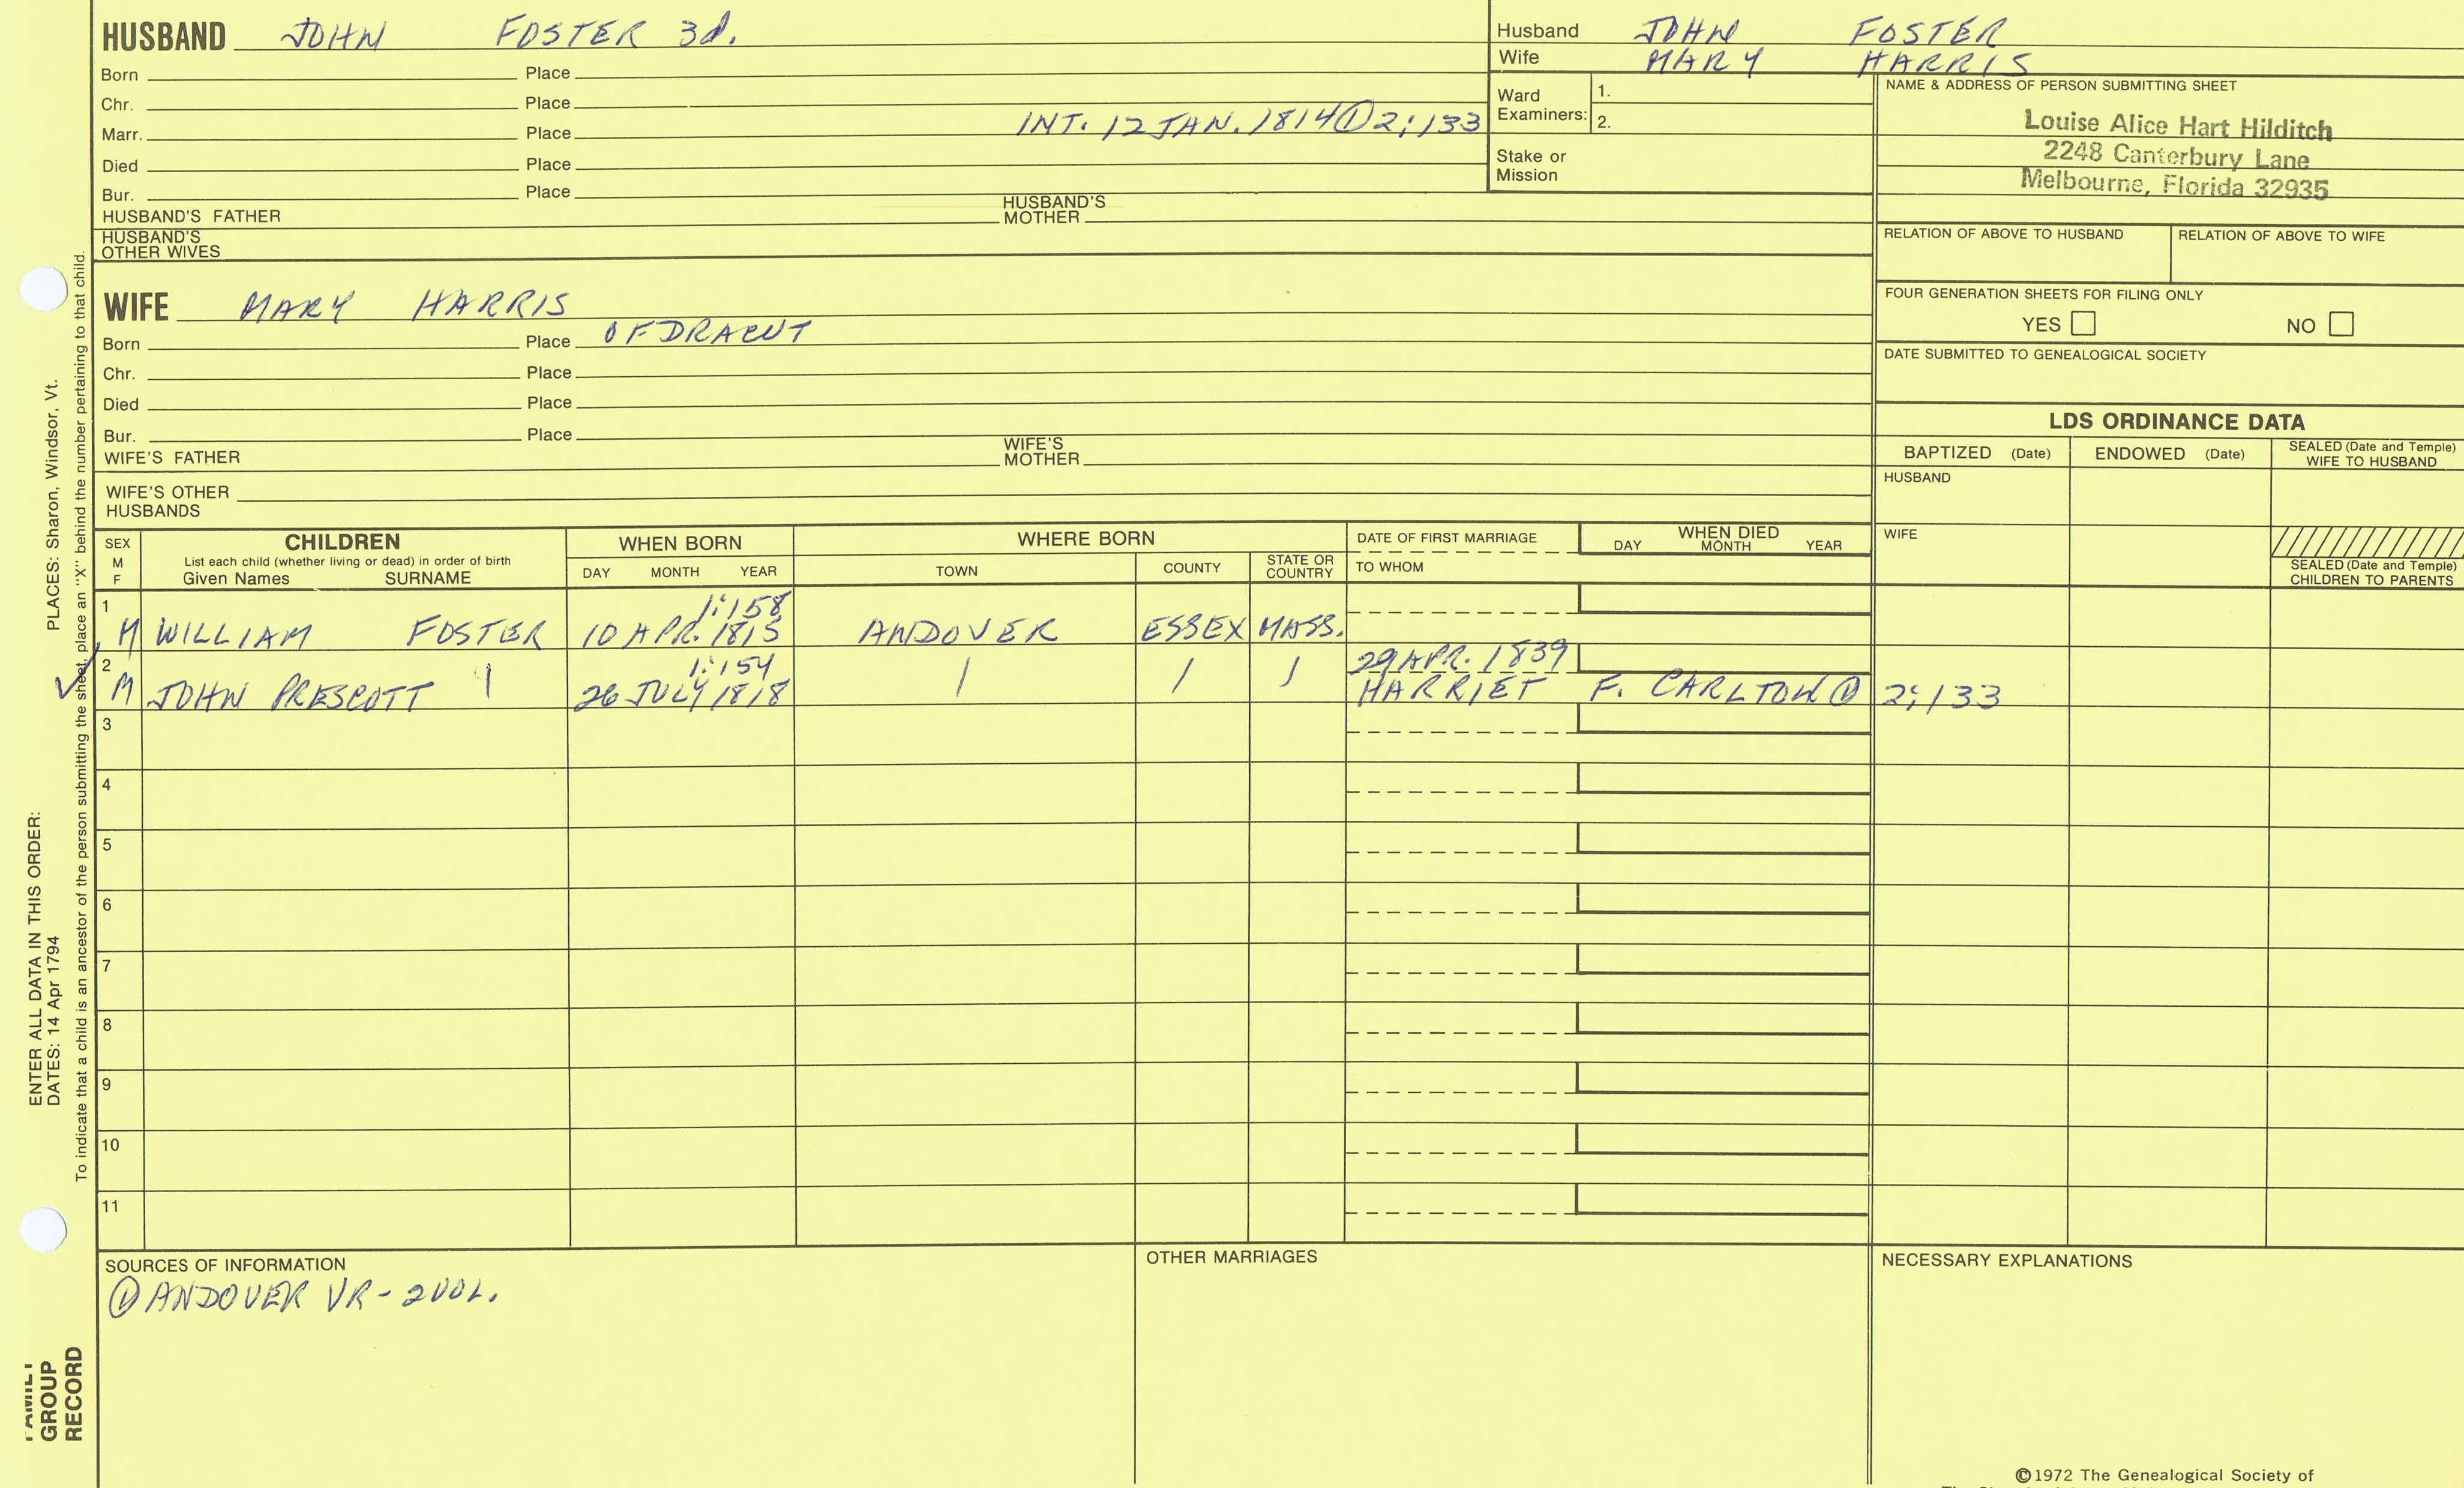 HUSBAND JOHN FOSTER 3d.
Born Place
Chr. Place
Marr. Place INT. 12 JAN. 1814 ① 2:133
Died Place
Bur. Place
HUSBAND'S FATHER HUSBAND'S MOTHER
HUSBAND'S OTHER WIVES
Husband JOHN FOSTER
Wife MARY HARRIS
Ward Examiners: 1.
2.
Stake or Mission
NAME & ADDRESS OF PERSON SUBMITTING SHEET
Louise Alice Hart Hilditch
2248 Canterbury Lane
Melbourne, Florida 32935
RELATION OF ABOVE TO HUSBAND RELATION OF ABOVE TO WIFE
FOUR GENERATION SHEETS FOR FILING ONLY
YES NO
DATE SUBMITTED TO GENEALOGICAL SOCIETY
WIFE MARY HARRIS
Born Place OF DRACUT
Chr. Place
Died Place
Bur. Place
WIFE'S FATHER WIFE'S MOTHER
WIFE'S OTHER HUSBANDS
LDS ORDINANCE DATA
BAPTIZED (Date) ENDOWED (Date) SEALED (Date and Temple) WIFE TO HUSBAND
HUSBAND
WIFE
SEALED (Date and Temple) CHILDREN TO PARENTS
SEX M F
CHILDREN
List each child (whether living or dead) in order of birth
Given Names SURNAME
WHEN BORN
DAY MONTH YEAR
WHERE BORN
TOWN COUNTY STATE OR COUNTRY
DATE OF FIRST MARRIAGE
TO WHOM
WHEN DIED
DAY MONTH YEAR
1 1:158
M WILLIAM FOSTER 10 APR. 1815 ANDOVER ESSEX MASS.
2 1:154 29 APR. 1839
M JOHN PRESCOTT 26 JULY 1818 HARRIET F. CARLTON ① 2:133
3
4
5
6
7
8
9
10
11
SOURCES OF INFORMATION
① ANDOVER VR - 2 VOL.
OTHER MARRIAGES
NECESSARY EXPLANATIONS
©1972 The Genealogical Society of
ENTER ALL DATA IN THIS ORDER:
DATES: 14 Apr 1794 PLACES: Sharon, Windsor, Vt.
To indicate that a child is an ancestor of the person submitting the sheet, place an "X" behind the number pertaining to that child.
FAMILY
GROUP
RECORD